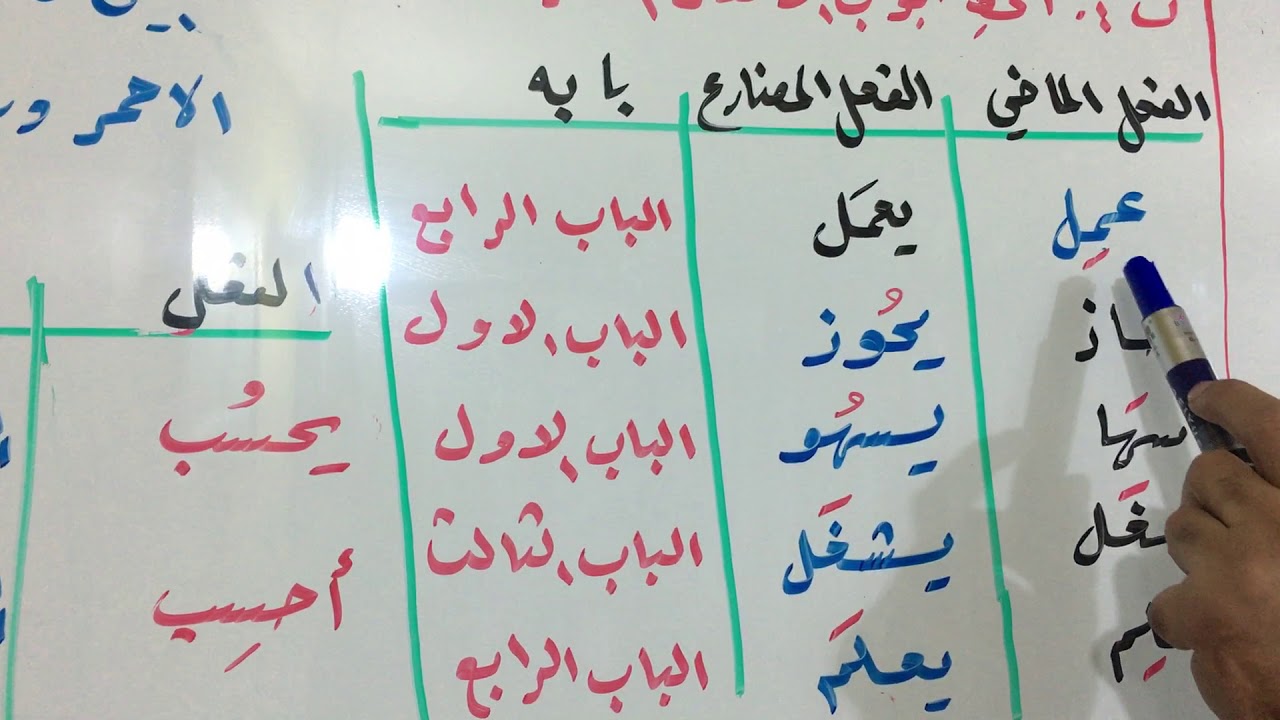 الفعل الماضي الفعل المضارع بابه
عمِل يعمَل الباب الرابع
يحُوز الباب الاول
سهَا يسهُو الباب الاول
يشغَل الباب الثالث
يعلَم الباب الرابع
الاحمر
الفعل
يحسُب
أحسِب